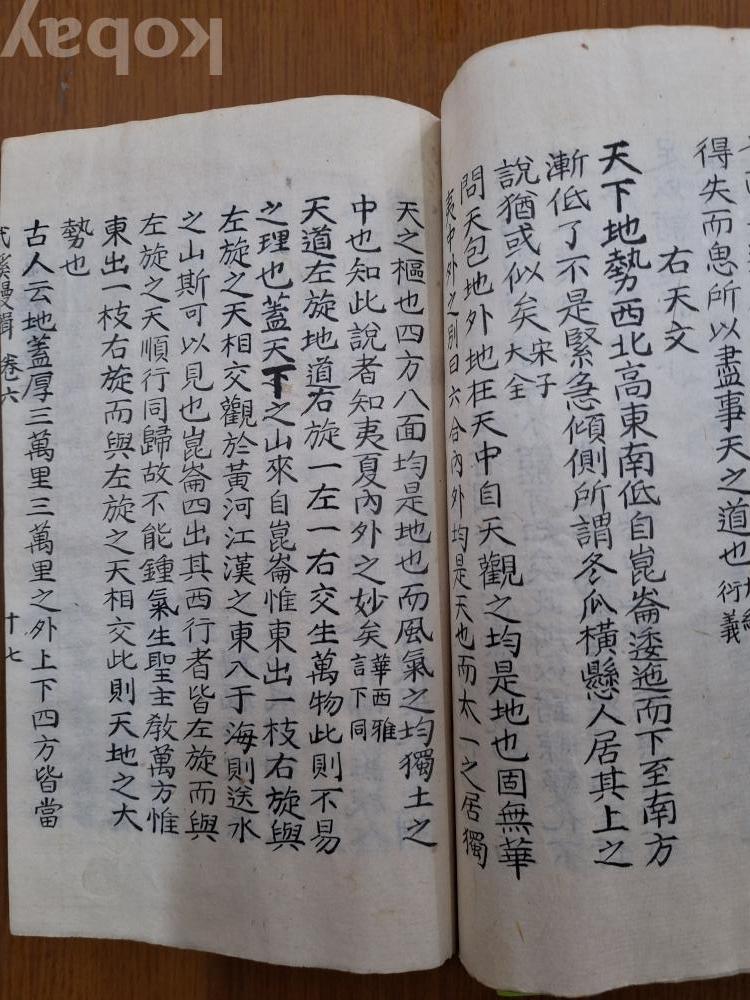 得失而思所以盡事天之道也 衍義
右天文
天下地勢西北高東南低自崑崙逶迤而下至南方
漸低了不是緊急傾側所謂冬瓜橫懸人居其上之
說猶或似矣 宋子大全
問天包地外地在天中自天觀之均是地也固無華
夷中外之別曰六合內外均是天也而太一之居獨
天之樞也四方八面均是地也而風氣之均獨土之
中也知此說者知夷夏內外之妙矣 華西雅言下同
天道左旋地道右旋一左一右交生萬物此則不易
之理也蓋天下之山來自崑崙惟東出一枝右旋與
左旋之天相交觀於黃河江漢之東入于海則送水
之山斯可以見也崑崙四出其西行者皆左旋而與
左旋之天順行同歸故不能鍾氣生聖主敎萬方惟
東出一枝右旋而與左旋之天相交此則天地之大
勢也
古人云地蓋厚三萬里三萬里之外上下四方皆當
溪漫輯 卷六 十七
kobay